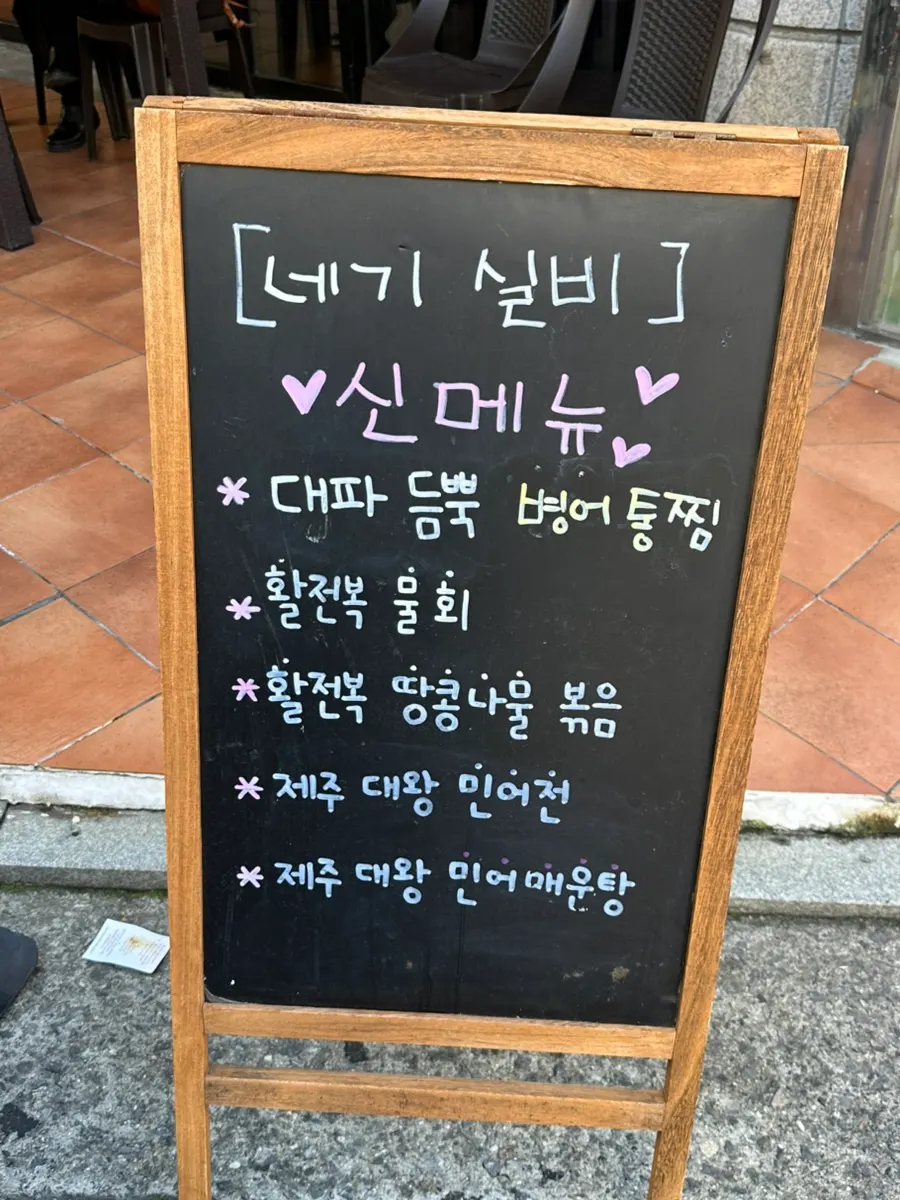 [네기 실비]
♥신메뉴♥♥
* 대파 듬뿍 병어통찜
* 활전복 물회
* 활전복 땅콩나물 볶음
* 제주 대왕 민어전
* 제주 대왕 민어매운탕